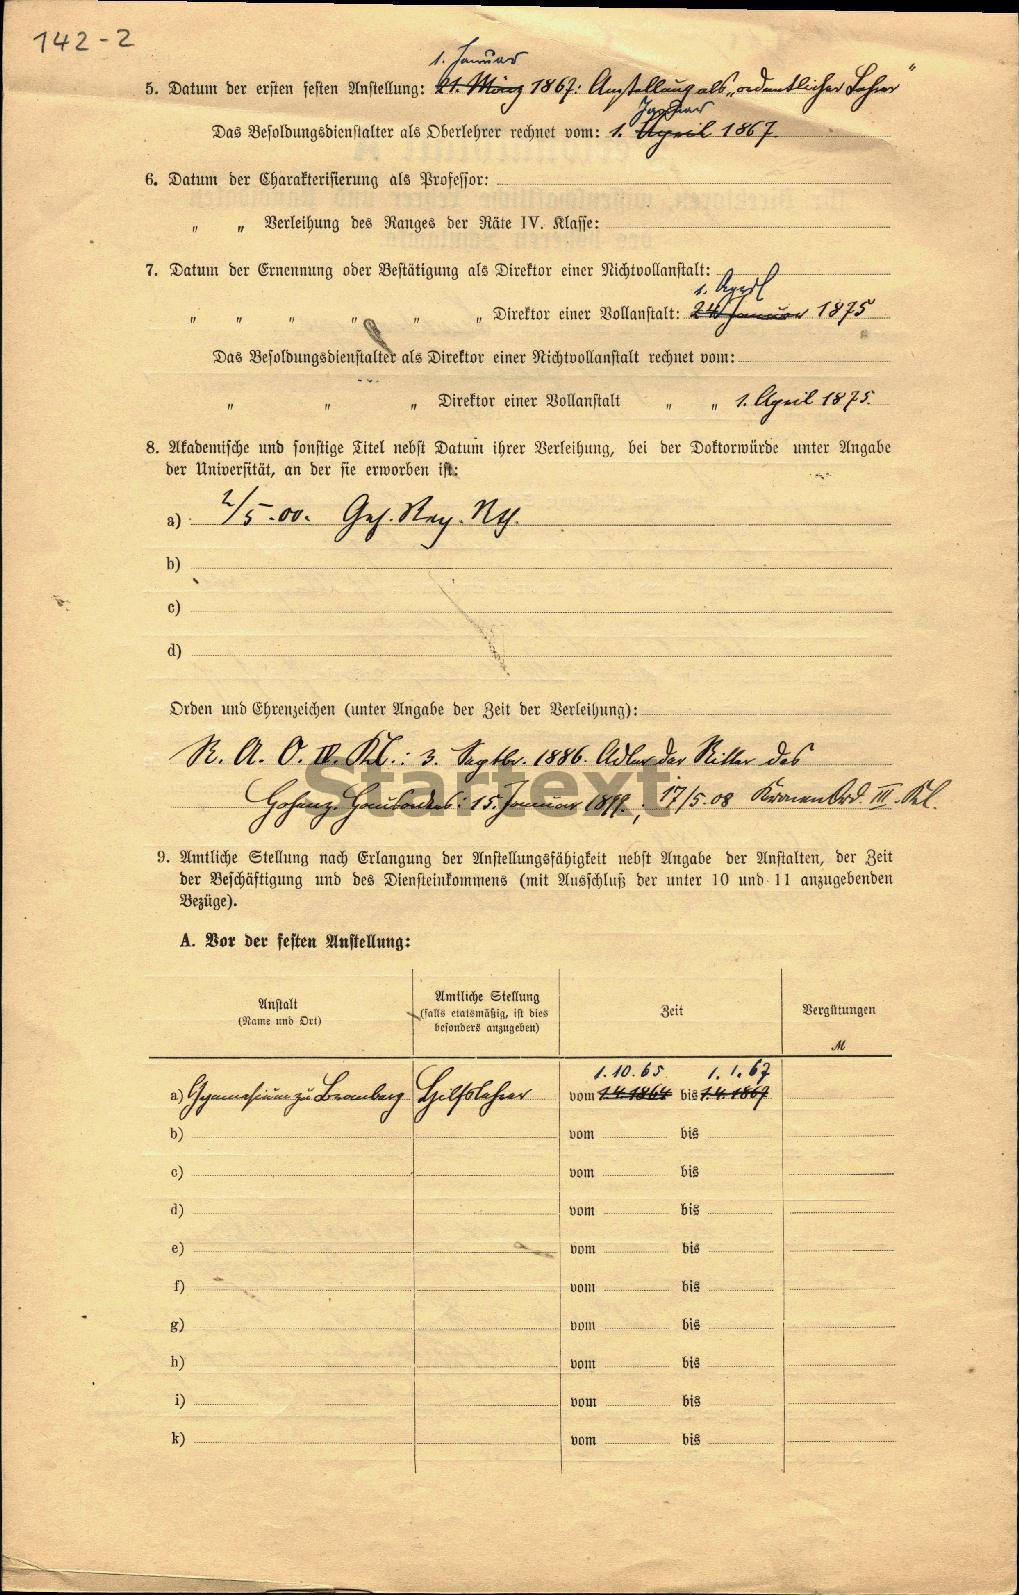 142-2
1. Januar
5. Datum der ersten festen Anstellung: 21. März 1867: Anstellung als „ordentlicher Lehrer“
Januar
Das Besoldungsdienstalter als Oberlehrer rechnet vom: 1. April 1867
6. Datum der Charakterisierung als Professor:
„ „ Verleihung des Ranges der Räte IV. Klasse:
7. Datum der Ernennung oder Bestätigung als Direktor einer Nichtvollanstalt:
1. April
„ „ „ „ „ „ Direktor einer Vollanstalt: 24. Januar 1875
Das Besoldungsdienstalter als Direktor einer Nichtvollanstalt rechnet vom:
„ „ „ Direktor einer Vollanstalt „ „ 1. April 1875.
8. Akademische und sonstige Titel nebst Datum ihrer Verleihung, bei der Doktorwürde unter Angabe
der Universität, an der sie erworben ist:
a) 2/5.00. Geh. Reg. Rth.
b)
c)
d)
Orden und Ehrenzeichen (unter Angabe der Zeit der Verleihung):
R. A. O. IV. Kl.: 3. Septbr. 1886. Adler der Ritter des
Hohenz. Hausordens: 15. Januar 1899. ; 17/5.08 KronenOrd. III. Kl.
Startext
9. Amtliche Stellung nach Erlangung der Anstellungsfähigkeit nebst Angabe der Anstalten, der Zeit
der Beschäftigung und des Diensteinkommens (mit Ausschluß der unter 10 und 11 anzugebenden
Bezüge).
A. Vor der festen Anstellung:
Anstalt
(Name und Ort)
Amtliche Stellung
(falls etatsmäßig, ist dies
besonders anzugeben)
Zeit
Vergütungen
M
1.10.65 1.1.67
a) Gymnasium zu Bromberg Hilfslehrer vom 1.4.1864 bis 1.4.1867
b) vom bis
c) vom bis
d) vom bis
e) vom bis
f) vom bis
g) vom bis
h) vom bis
i) vom bis
k) vom bis